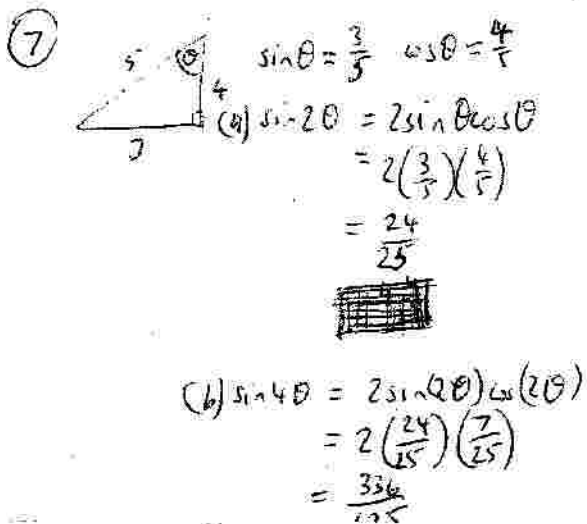 7
5 θ 4 3
sinθ = 3/5 cosθ = 4/5
(a) sin 2θ = 2sinθcosθ
= 2(3/5)(4/5)
= 24/25
(b) sin 4θ = 2sin(2θ)cos(2θ)
= 2(24/25)(7/25)
= 336/625